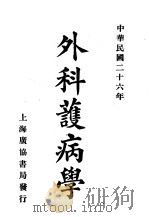 中華民國二十六年
外科護病學
上海廣協書局發行